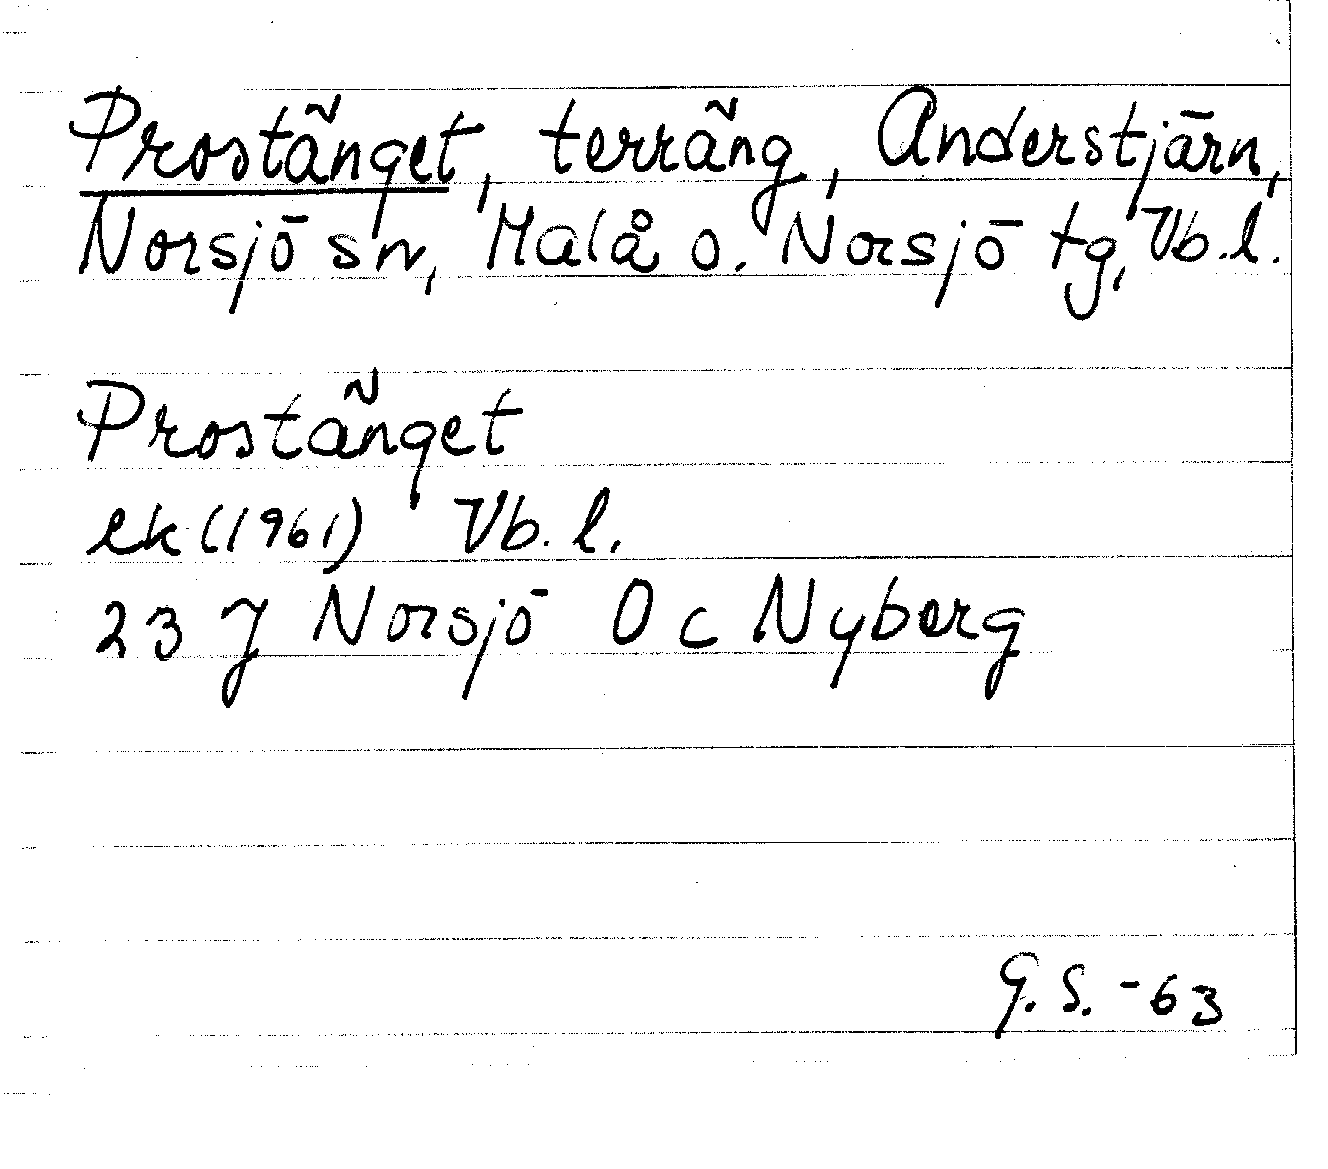 Prostänget, terräng, Anderstjärn,
Norsjö sn, Malå o. Norsjö tg, Vb.l.
Prostänget
ek (1961) Vb. l.
23 J Norsjö 0 c Nyberg
G. S. -63